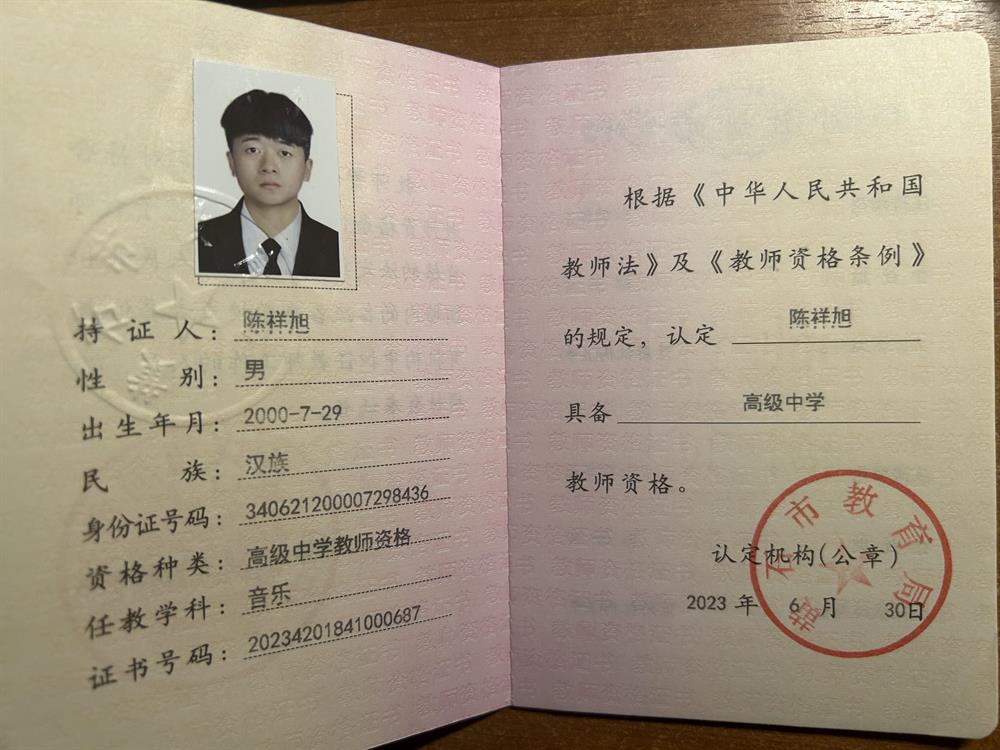 持证人：陈祥旭
性别：男
出生年月：2000-7-29
民族：汉族
身份证号码：340621200007298436
资格种类：高级中学教师资格
任教学科：音乐
证书号码：20234201841000687
根据《中华人民共和国
教师法》及《教师资格条例》
的规定，认定 陈祥旭
具备 高级中学
教师资格。
认定机构（公章）
2023 年 6 月 30日
黄石市教育局